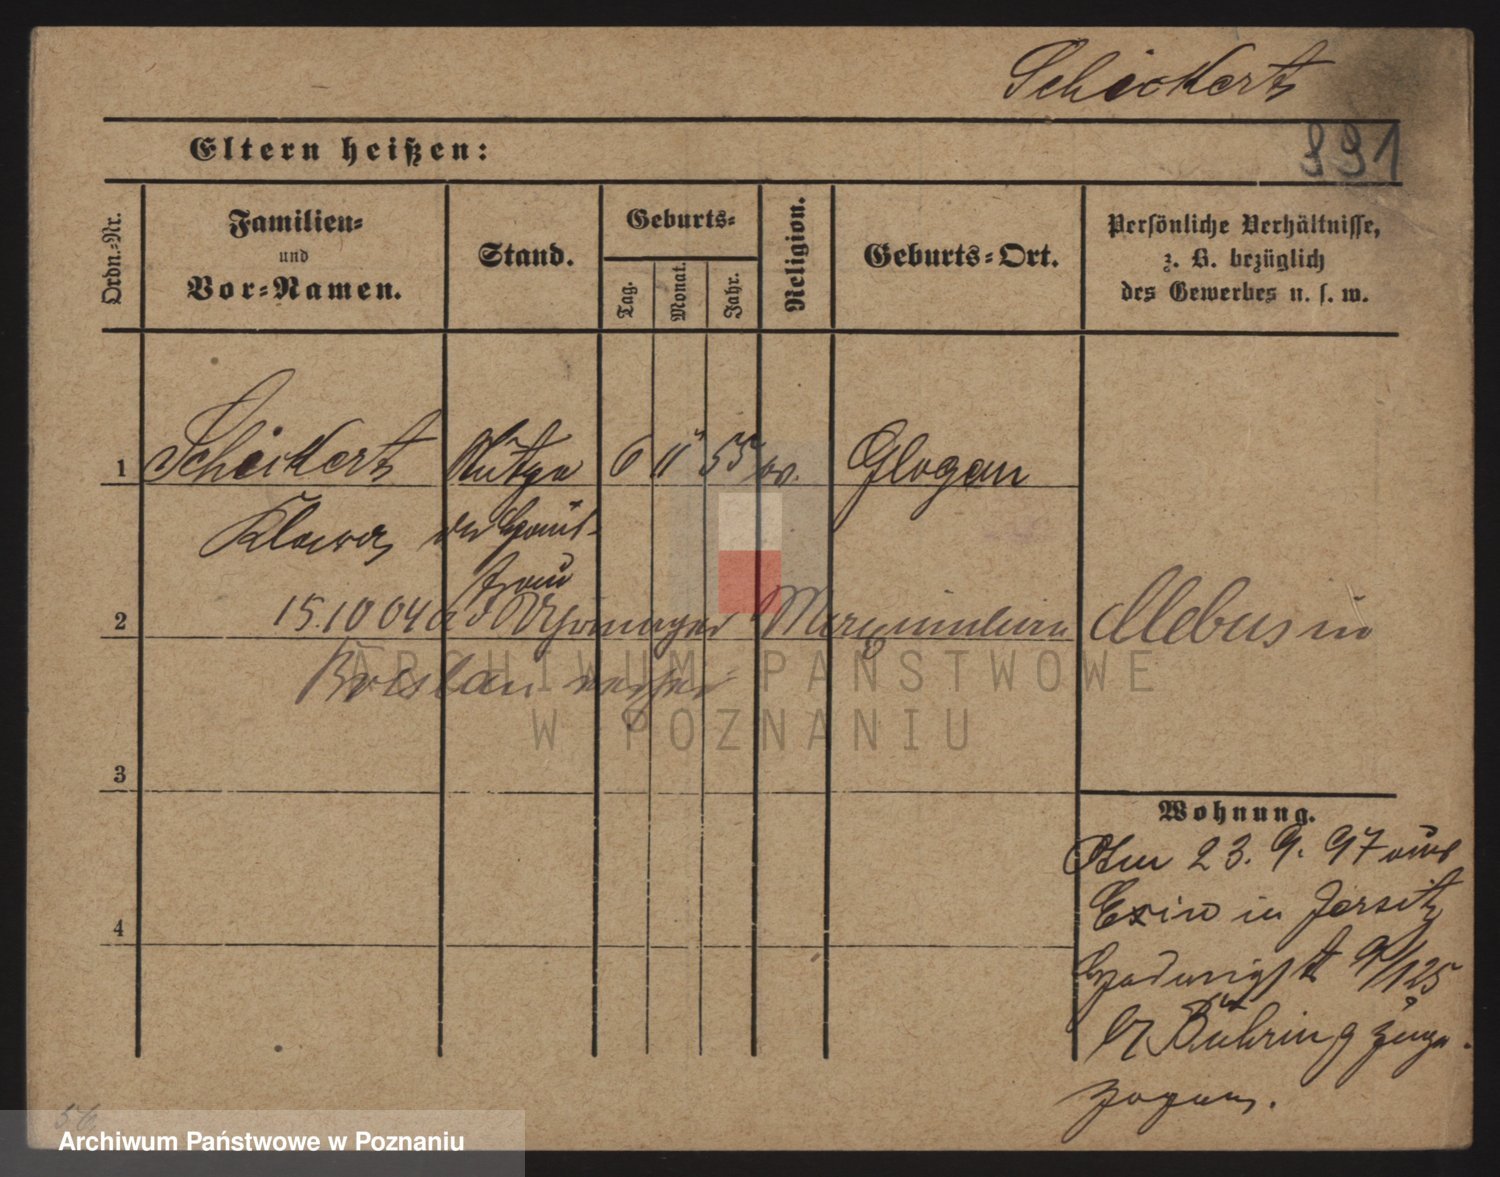 Scheckert
391
Eltern heißen:
Ordn.-Nr.
Familien-
und
Vor-Namen.
Stand.
Geburts-
Tag.
Monat.
Jahr.
Religion.
Geburts-Ort.
Persönliche Verhältnisse,
z. B. bezüglich
des Gewerbes u. s. w.
1 Scheckert Stütze 6 11 55 ev. Glogau
Klara der Haus-
frau
2 15.10 04 Mebus in
Breslau
3
Wohnung.
Am 23. 9. 97 aus
Exin in Jersitz
4
Hedwigstr 9/125
b/ Bühring zuge-
zogen.
ARCHIWUM PAŃSTWOWE
W POZNANIU
56
Archiwum Państwowe w Poznaniu